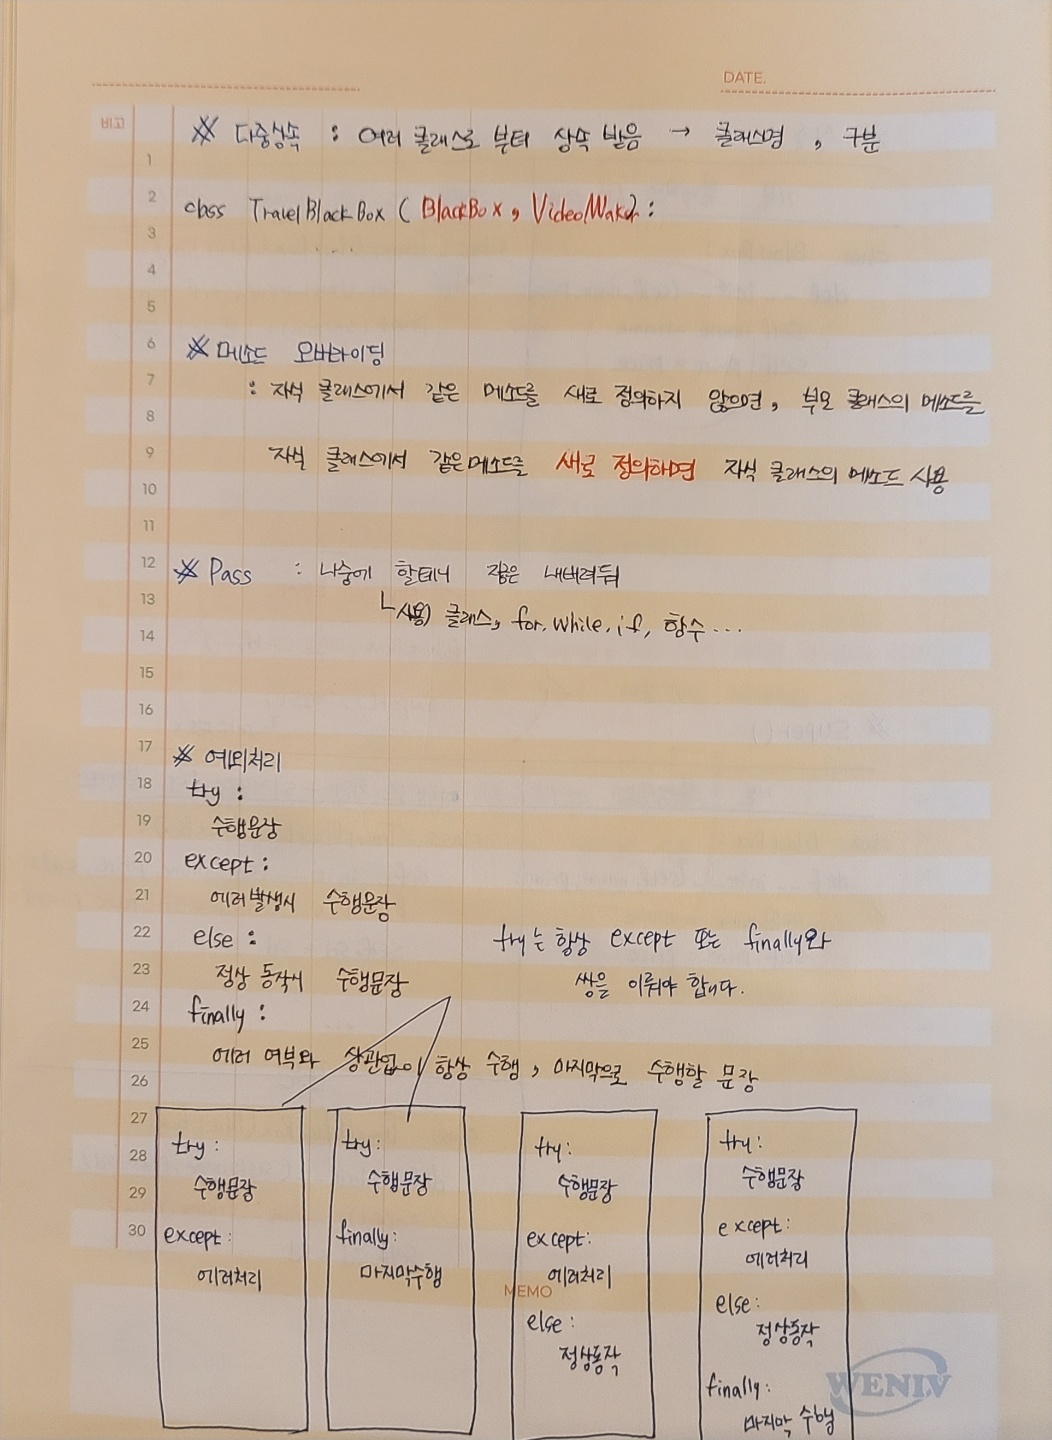 DATE.
비고
※ 다중상속 : 여러 클래스로 부터 상속 받음 → 클래스명 , 구분
1
2
class TravelBlackBox ( BlackBox, VideoMaker) :
3
. . .
4
5
6
※ 메소드 오버라이딩
7
: 자식 클래스에서 같은 메소드를 새로 정의하지 않으면, 부모 클래스의 메소드를
8
9
자식 클래스에서 같은 메소드를 새로 정의하면 자식 클래스의 메소드 사용
10
11
12
※ Pass : 나중에 할테니 지금은 내버려둬
13
└ 사용) 클래스, for, while, if, 함수 ...
14
15
16
17
※ 예외처리
18
try :
19
수행문장
20
except :
21
에러발생시 수행문장
22
else : try는 항상 except 또는 finally와
23
정상 동작시 수행문장 쌍을 이뤄야 합니다.
24
finally :
25
에러 여부와 상관없이 항상 수행, 마지막으로 수행할 문장
26
27
28
29
30
try :
수행문장
except :
에러처리
try :
수행문장
finally :
마지막수행
try :
수행문장
except :
에러처리
else :
정상동작
try :
수행문장
except :
에러처리
else :
정상동작
finally :
마지막 수행
MEMO
WENIV